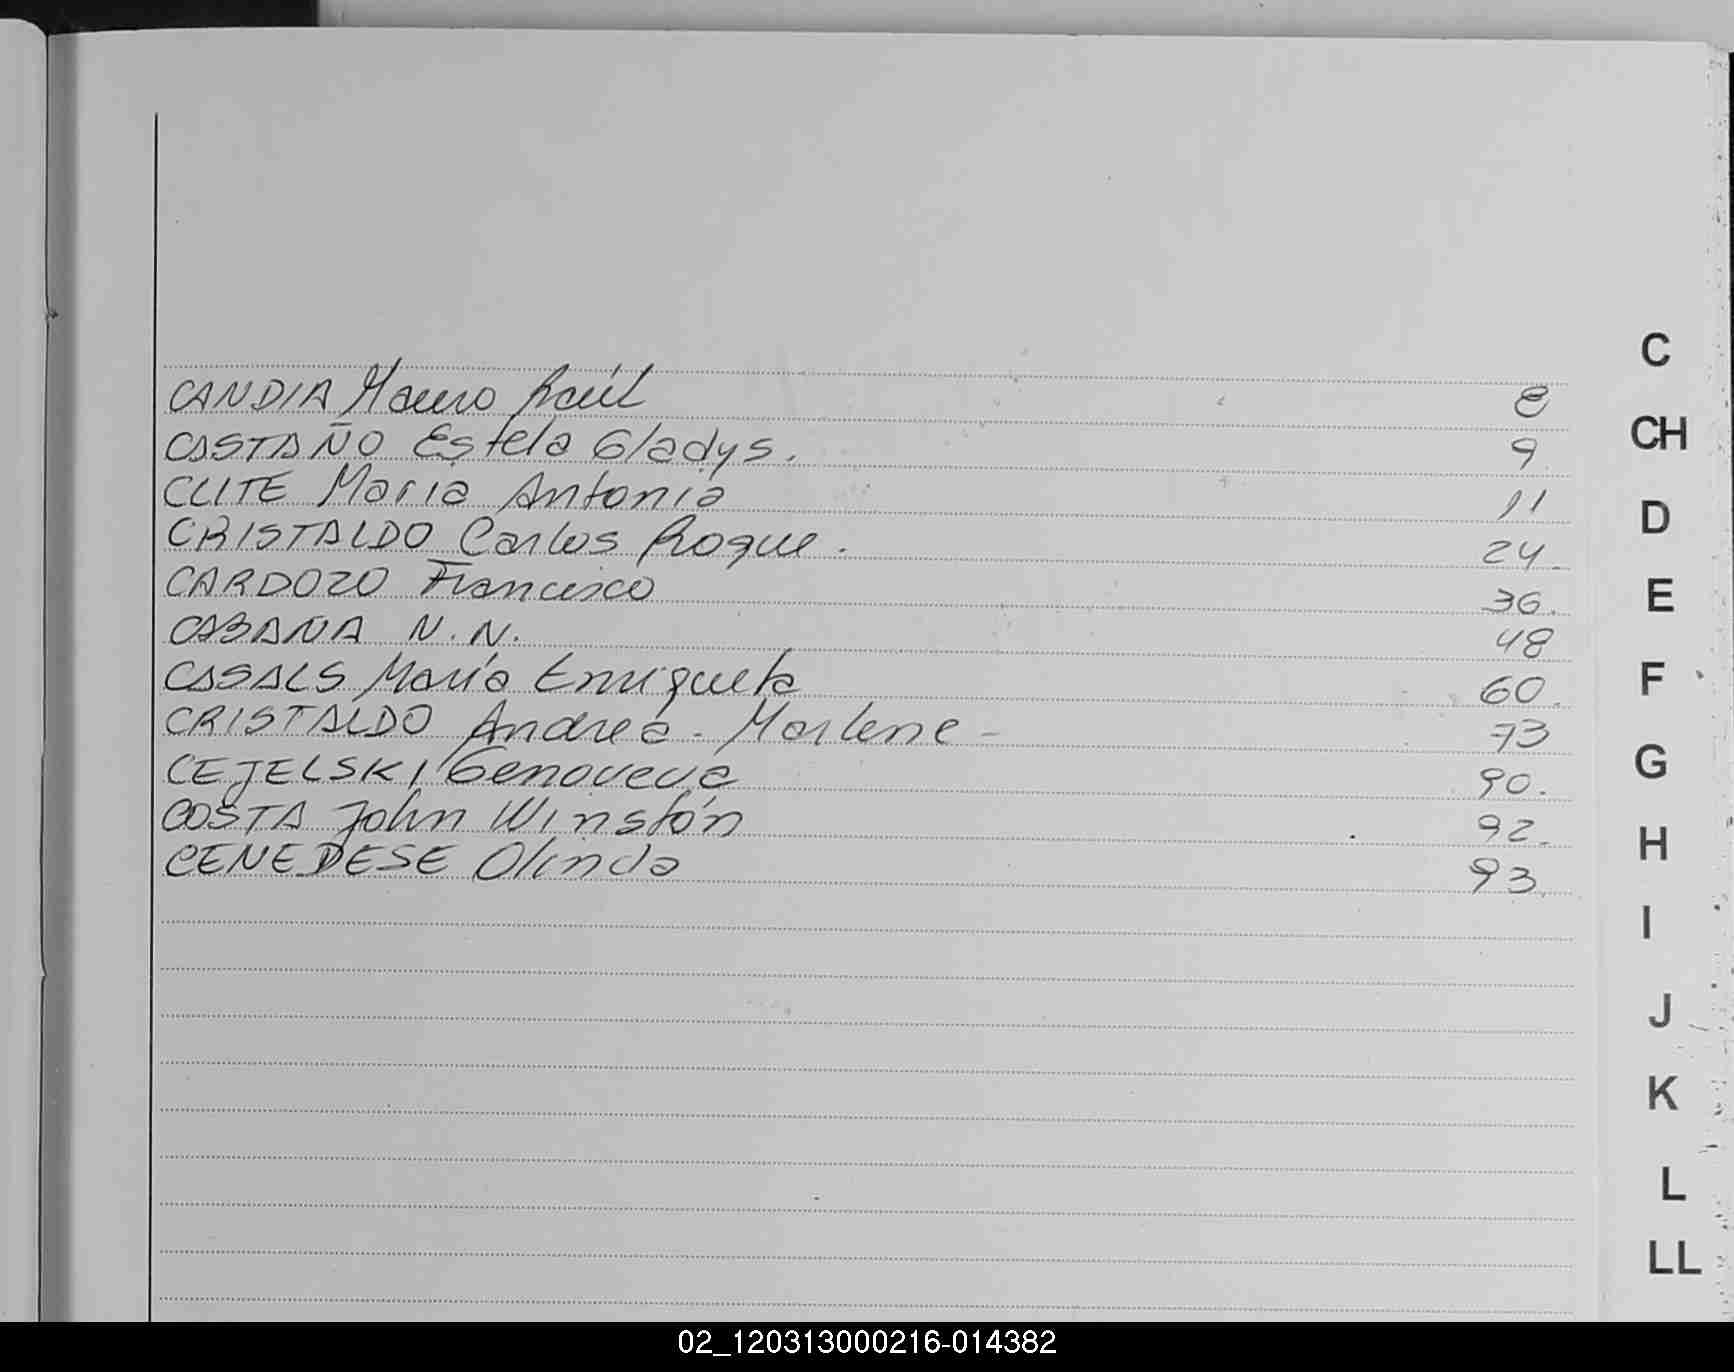 C
CANDIA Mauro Raúl 8
CASTAÑO Estela Gladys. 9
CLITE Maria Antonia 11
CRISTALDO Carlos Roque. 24.
CARDOZO Francisco 36.
CABAÑA N.N. 48
CASALS María Enriqueta 60.
CRISTALDO Andrea - Marlene - 73
CEJELSKI Genoveva 90.
COSTA John Winstón 92.
CENEDESE Olinda 93.
CH
D
E
F
G
H
I
J
K
L
LL
02_120313000216-014382